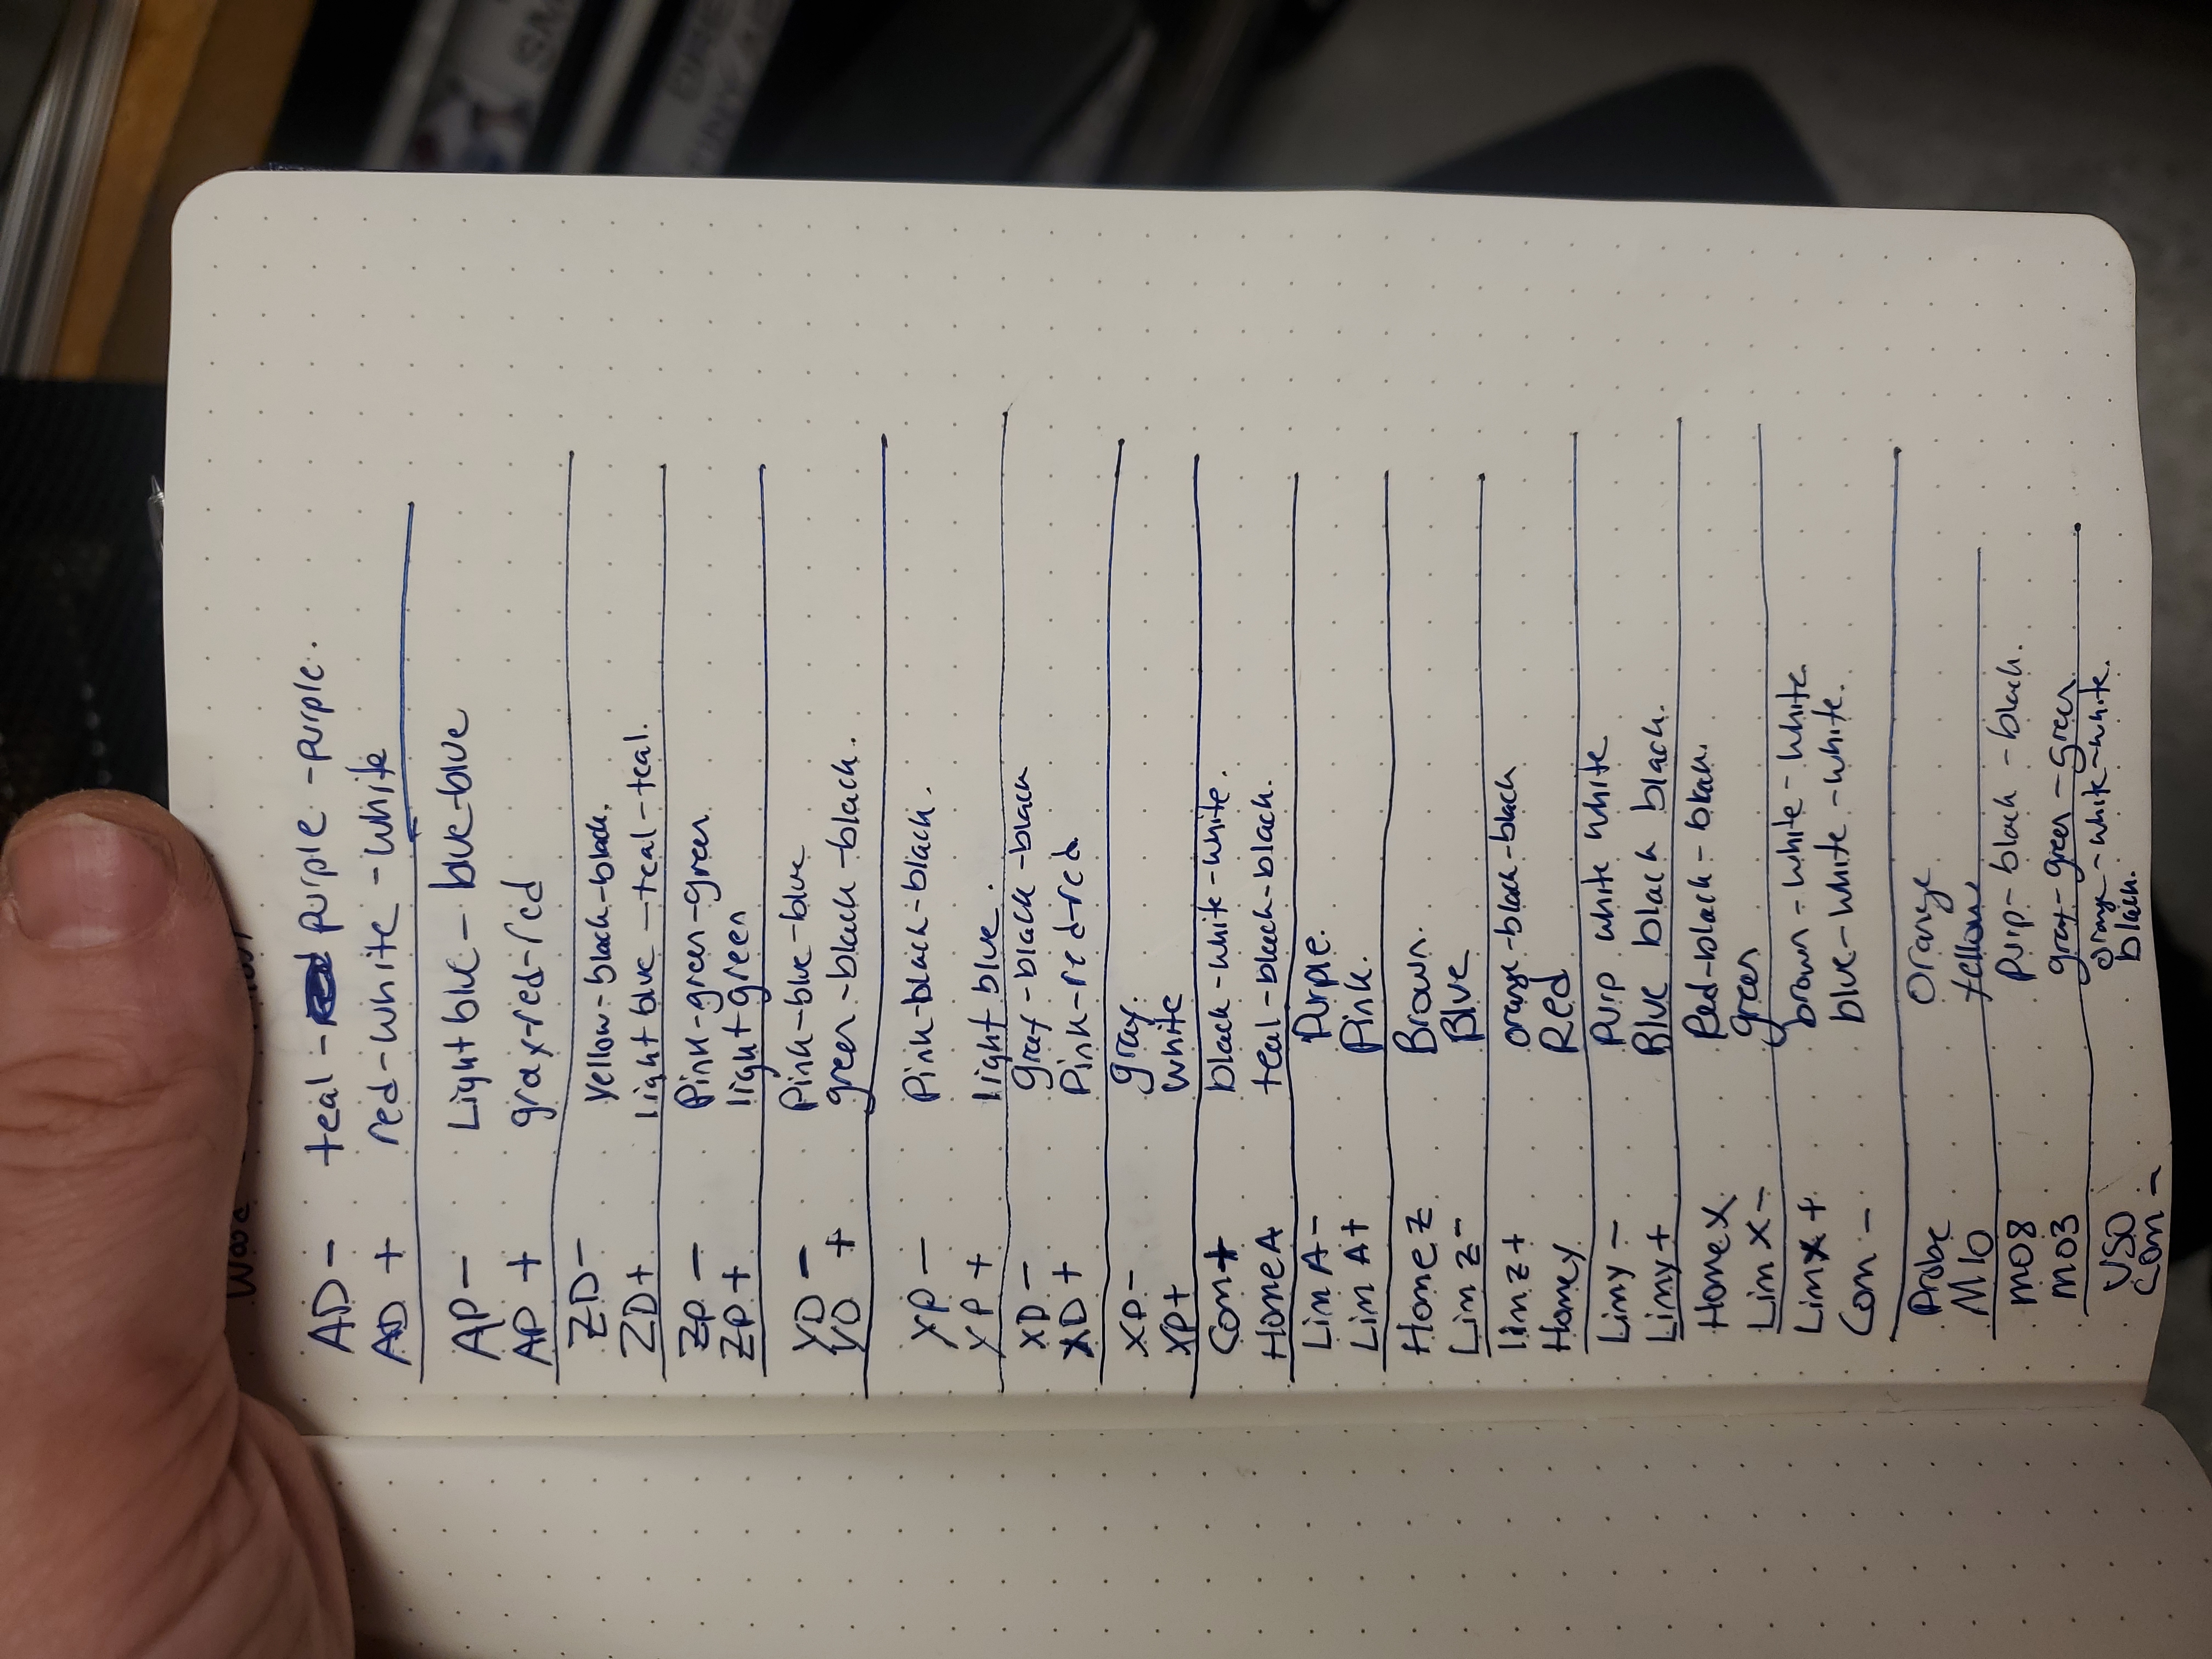 AD - teal - purple - purple.
AD + red-white-white
AP - Light blue - blue-blue
AP + gray-red-red
ZD - Yellow-black-black.
ZD + light blue - teal - teal.
ZP - Pink-green-green
ZP + light green
YD - Pink-blue-blue
YD + green-black-black.
YP - Pink-black-black.
YP + light blue.
XD - gray-black-black
XD + Pink-red-red
XP - gray.
XP+ white
Com+ black-white-white.
Home A teal-black-black.
Lim A - Purple.
Lim A+ Pink.
Home Z Brown.
Lim Z - Blue
lim Z + orange-black-black
Home y Red
Lim y - Purp white white
Lim y + Blue black black.
Home X Red-black-black.
Lim X - green
Lim X + brown-white-white.
Com - blue-white-white.
Probe Orange
M10 Yellow
M08 Purp-black-black.
M03 gray-green-green
VSO orange-white-white.
Com - black.